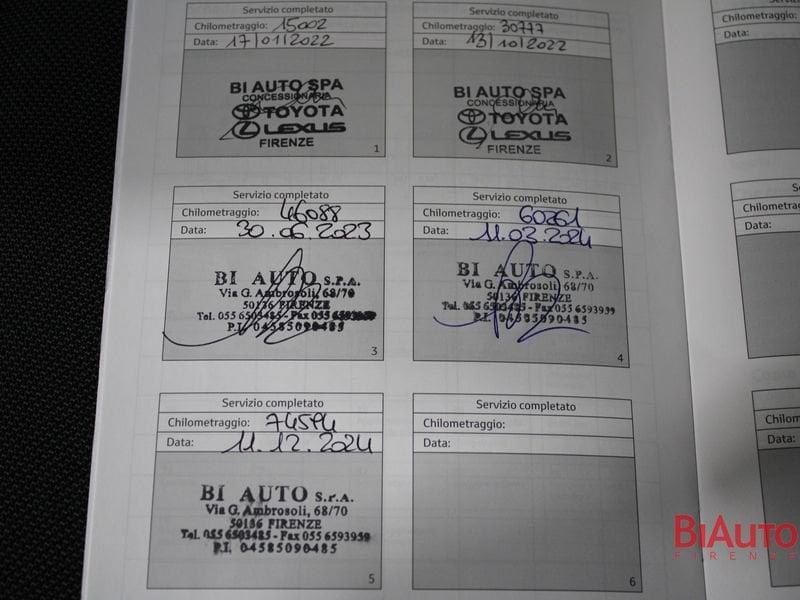 Servizio completato
Chilometraggio: 15002
Data: 17/01/2022
BI AUTO SPA
CONCESSIONARIA
TOYOTA
LEXUS
FIRENZE
1
Servizio completato
Chilometraggio: 30777
Data: 13/10/2022
BI AUTO SPA
CONCESSIONARIA
TOYOTA
LEXUS
FIRENZE
2
Servizio completato
Chilometraggio: 46088
Data: 30.06.2023
BI AUTO S.P.A.
Via G. Ambrosoli, 68/70
50136 FIRENZE
Tel. 055 6503485 - Fax 055 6593959
P.I. 04585090485
3
Servizio completato
Chilometraggio: 60261
Data: 11.03.2024
BI AUTO S.P.A.
Via G. Ambrosoli, 68/70
50136 FIRENZE
Tel. 055 6503485 - Fax 055 6593959
P.I. 04585090485
4
Servizio completato
Chilometraggio: 74594
Data: 11.12.2024
BI AUTO S.r.A.
Via G. Ambrosoli, 68/70
50136 FIRENZE
Tel. 055 6503485 - Fax 055 6593959
P.I. 04585090485
5
Servizio completato
Chilometraggio:
Data:
6
Chilometraggio:
Data:
Data:
Data:
BIAUTO
FIRENZE